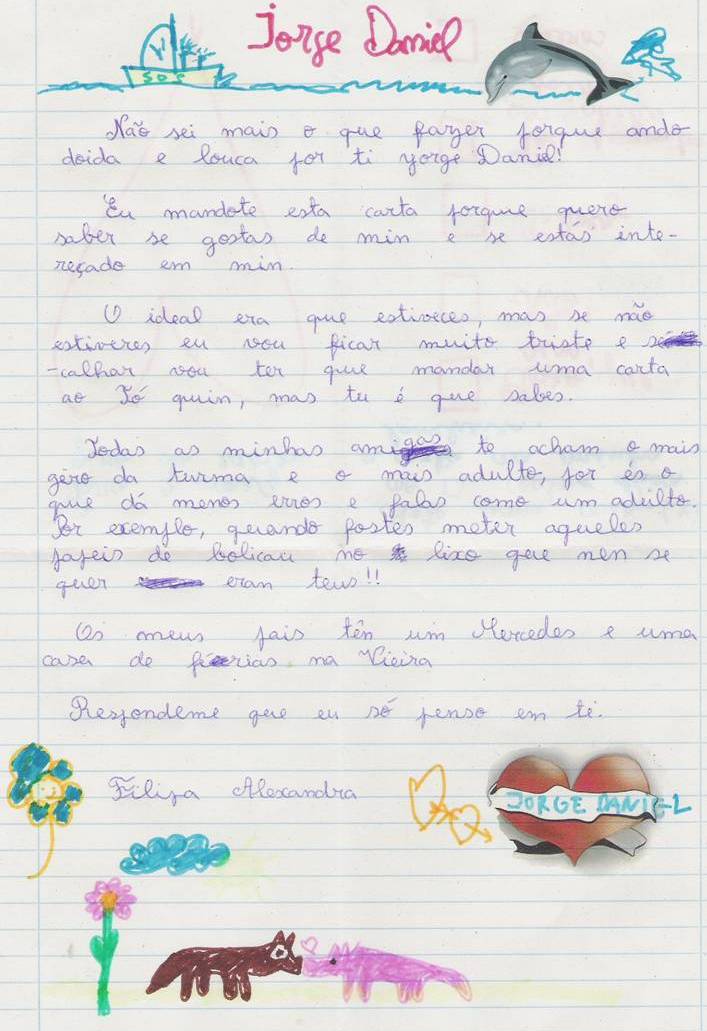 Jorge Daniel
SOS
Não sei mais o que fazer porque ando
doida e louca por ti yorge Daniel!
Eu mandote esta carta porque quero
saber se gostas de min e se estás inte-
reçado em min.
O ideal era que estiveces, mas se não
estiveres eu vou ficar muito triste e se
-calhar vou ter que mandar uma carta
ao Tó quin, mas tu é que sabes.
Todas as minhas amigas te acham o mais
géro da turma e o mais adulto, por és o
que dá menos erros e falas como um adulto.
Por exemplo, quando fostes meter aqueles
papeis de bolicau no lixo que nen se
quer eran teus!!
Os meus pais tên um Mercedes e uma
casa de férias na Vieira
Respondeme que eu só penso em ti.
Filipa Alexandra
JORGE DANIEL